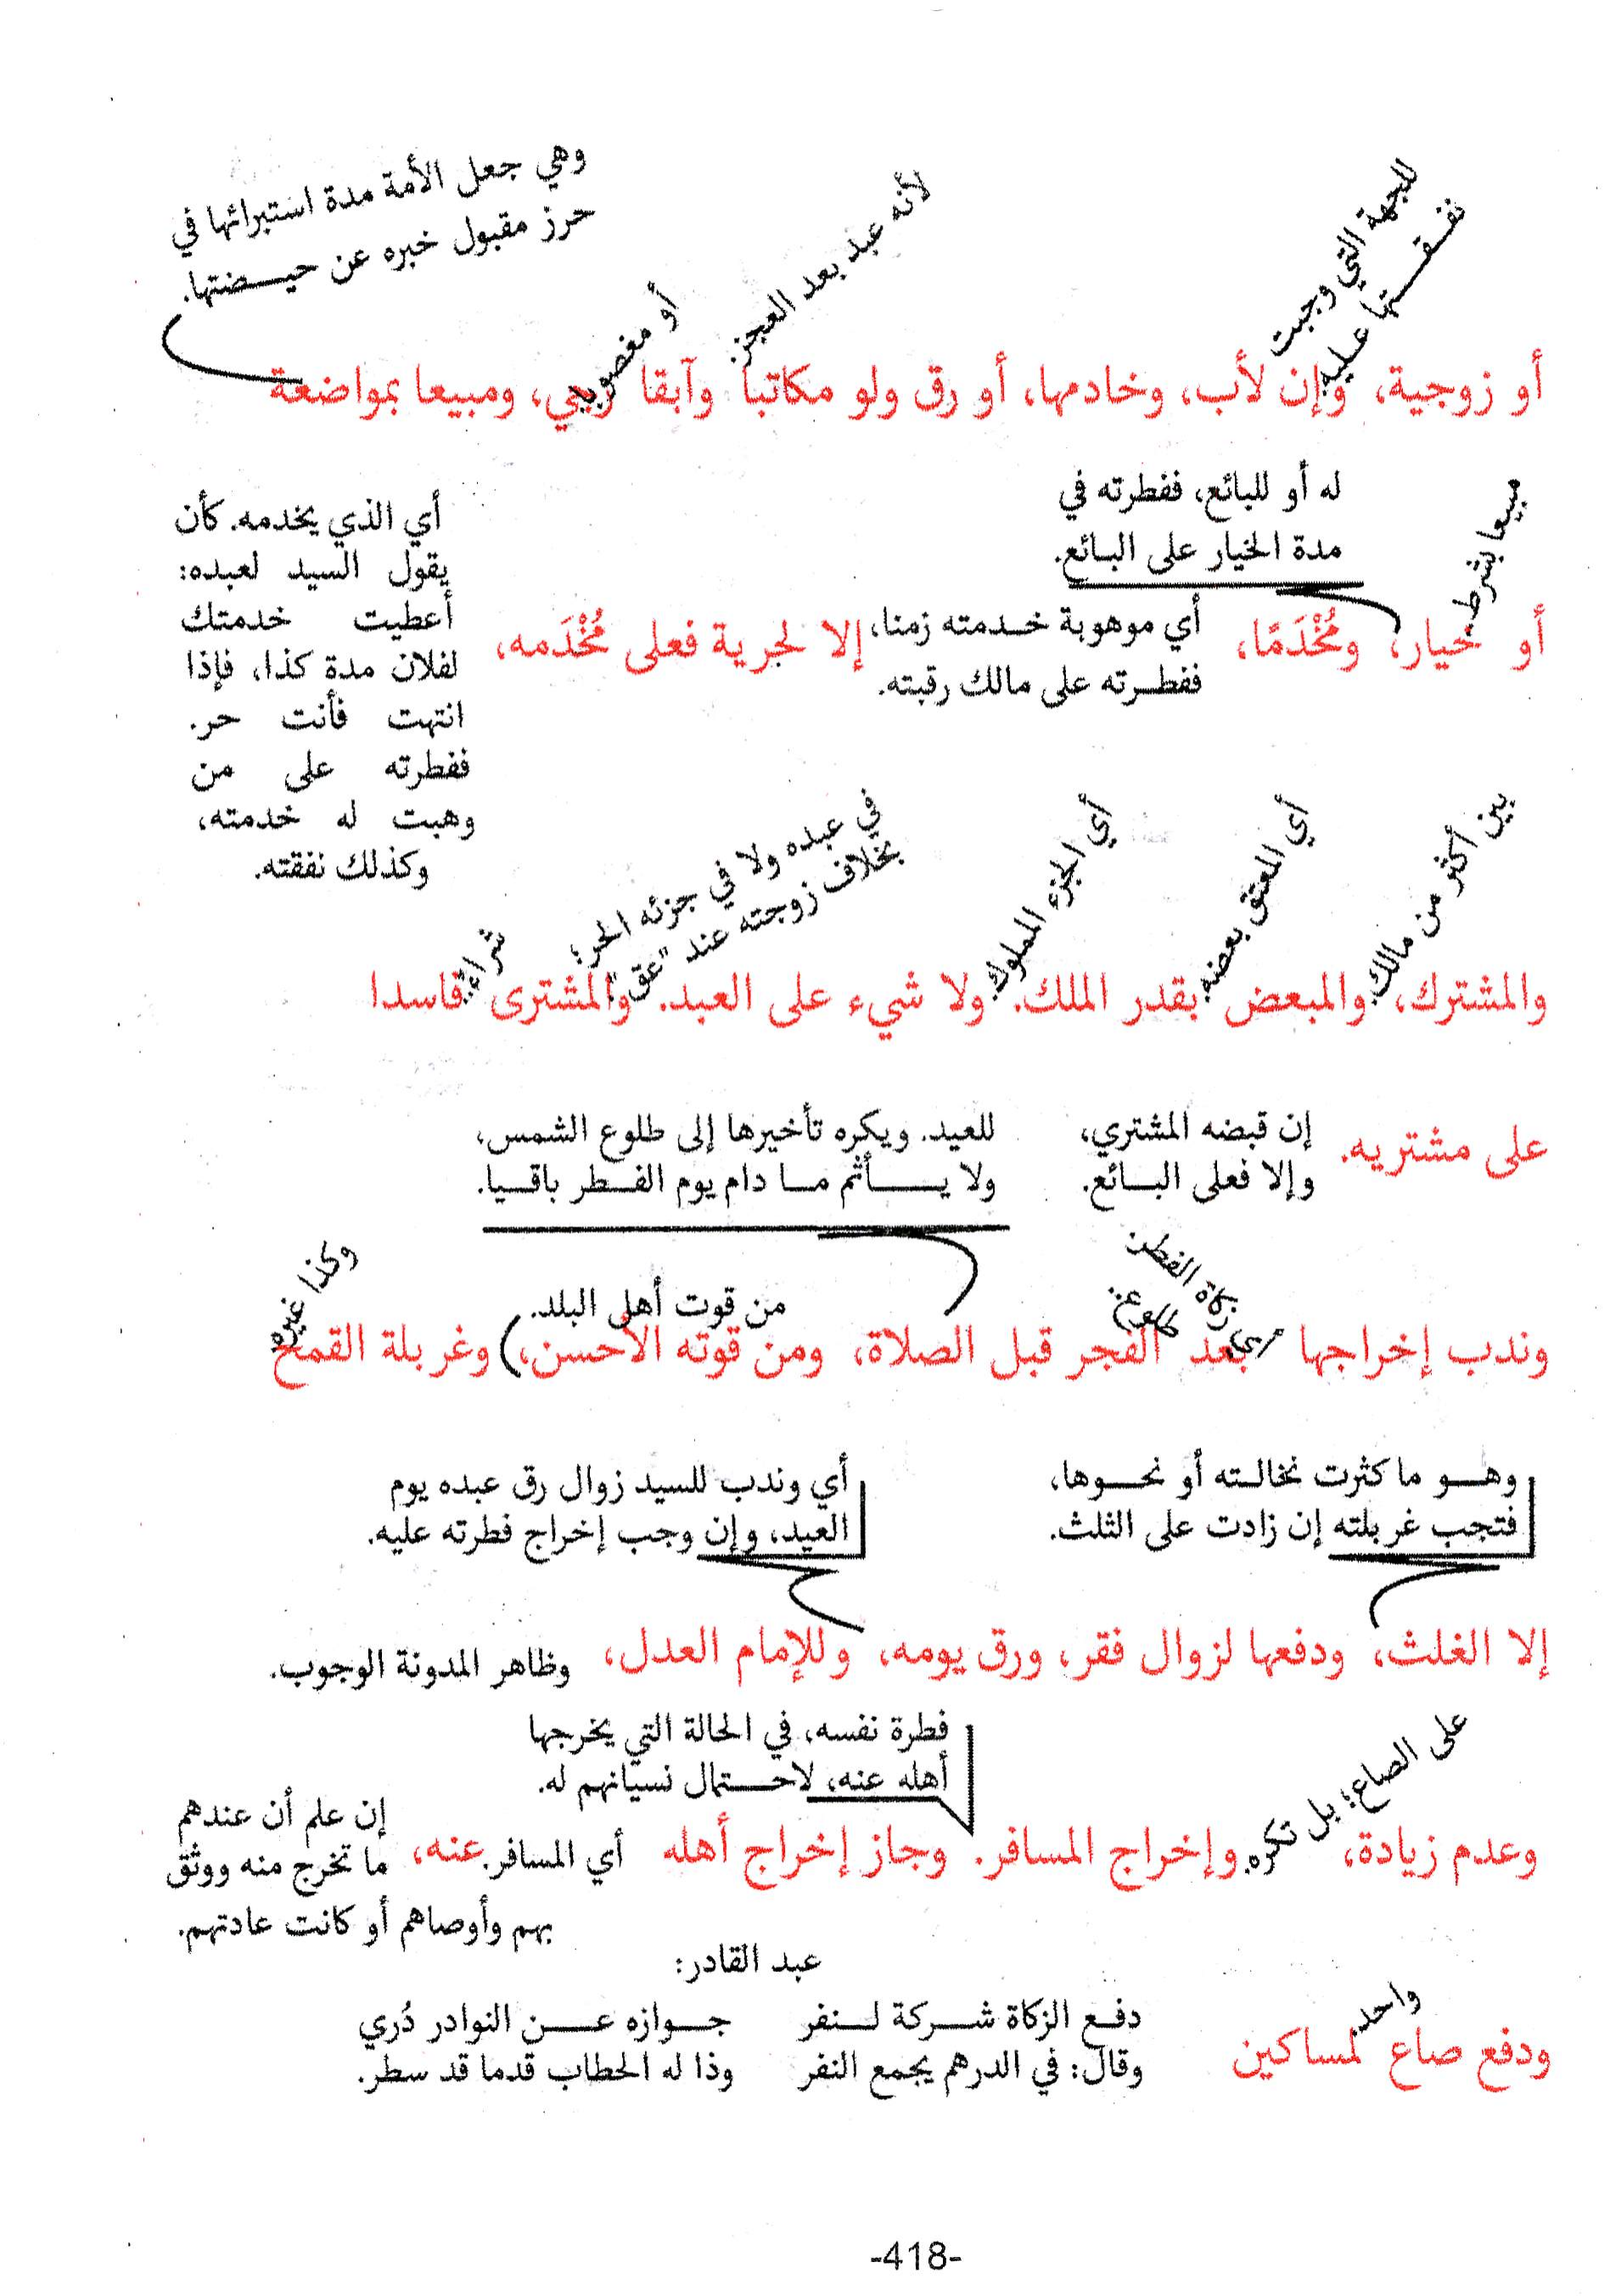 وهي جعل الأمة مدة استبرائها في
حرز مقبول خبره عن حيضتها.
أو مغصوبا
لأنه عبد بعد العجز.
للجهة التي وجبت
نفقتها عليه
أو زوجية، وإن لأب، وخادمها، أو رق ولو مكاتبا وآبقا رجي، ومبيعا بمواضعة
له أو للبائع، ففطرته في
مدة الخيار على البائع.
مبيعا بشرط.
أو خيار، ومُخْدَمًا،
أي موهوبة خدمته زمنا،
ففطرته على مالك رقبته.
إلا لحرية فعلى مُخْدَمه،
أي الذي يخدمه. كأن
يقول السيد لعبده:
أعطيت خدمتك
لفلان مدة كذا، فإذا
انتهت فأنت حر.
ففطرته على من
وهبت له خدمته،
وكذلك نفقته.
بين أكثر من مالك.
أي المعتق بعضه.
أي الجزء المملوك.
في عبده ولا في جزئه الحر؛
بخلاف زوجته عند "عق".
شراءً.
والمشترك، والمبعض بقدر الملك. ولا شيء على العبد. والمشترى فاسدا
على مشتريه.
إن قبضه المشتري،
وإلا فعلى البائع.
للعيد. ويكره تأخيرها إلى طلوع الشمس،
ولا يأثم ما دام يوم الفطر باقيا.
أي زكاة الفطر.
طلوع.
من قوت أهل البلد.
وكذا غيره
وندب إخراجها بعد الفجر قبل الصلاة، ومن قوته الأحسن، وغربلة القمح
وهو ما كثرت نخالته أو نحوها،
فتجب غربلته إن زادت على الثلث.
أي وندب للسيد زوال رق عبده يوم
العيد، وإن وجب إخراج فطرته عليه.
إلا الغلث، ودفعها لزوال فقر، ورق يومه، وللإمام العدل، وظاهر المدونة الوجوب.
على الصاع؛ بل تكره.
فطرة نفسه، في الحالة التي يخرجها
أهله عنه، لاحتمال نسيانهم له.
وعدم زيادة، وإخراج المسافر. وجاز إخراج أهله أي المسافر. عنه،
إن علم أن عندهم
ما تخرج منه ووثق
بهم وأوصاهم أو كانت عادتهم.
واحد.
ودفع صاع لمساكين
عبد القادر:
دفع الزكاة شركة لنفر جوازه عن النوادر دُري
وقال: في الدرهم يجمع النفر وذا له الحطاب قدما قد سطر.
-418-